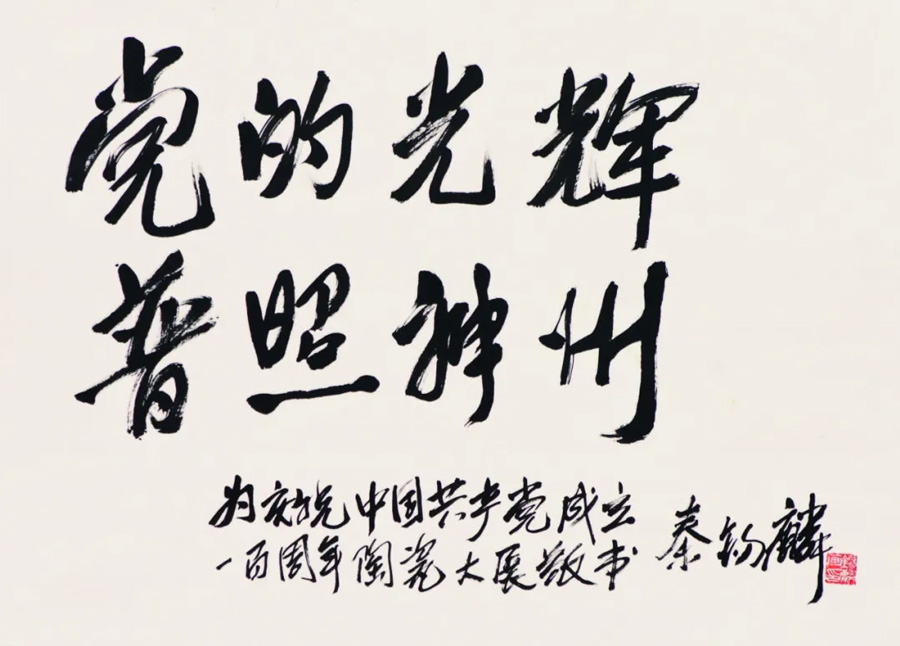 党的光辉
普照神州
为庆祝中国共产党成立
一百周年陶瓷大展敬书
秦锡麟